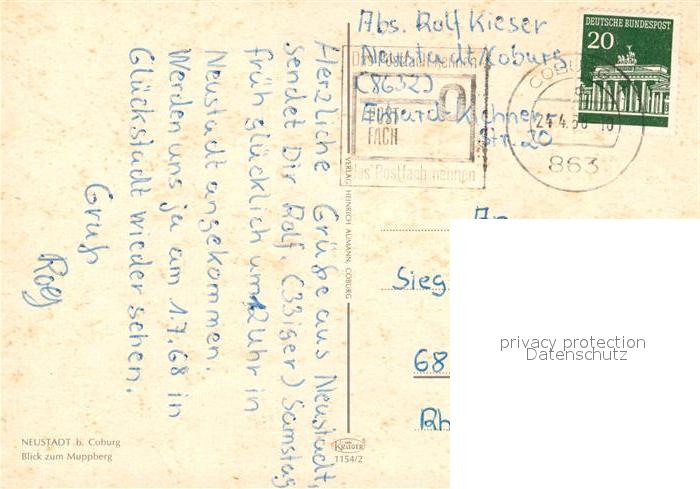 Herzliche Grüße aus Neustadt,
sendet Dir Rolf. (33iger) Samstag
früh glücklich um 2 Uhr in
Neustadt angekommen.
Werden uns ja am 1.7.68 in
Glückstadt wieder sehen.
Gruß
Rolf
NEUSTADT b. Coburg
Blick zum Muppberg
VERLAG HEINRICH AUMANN, COBURG
KRÜGER
1154/2
Abs. Rolf Kieser
Neustadt/Koburg
(8632)
Str. 20
Das Postfach nennen
POST
FACH
das Postfach nennen
DEUTSCHE BUNDESPOST
20
COBURG
24.4.68
863
An
Sieg
68
Rh
privacy protection
Datenschutz